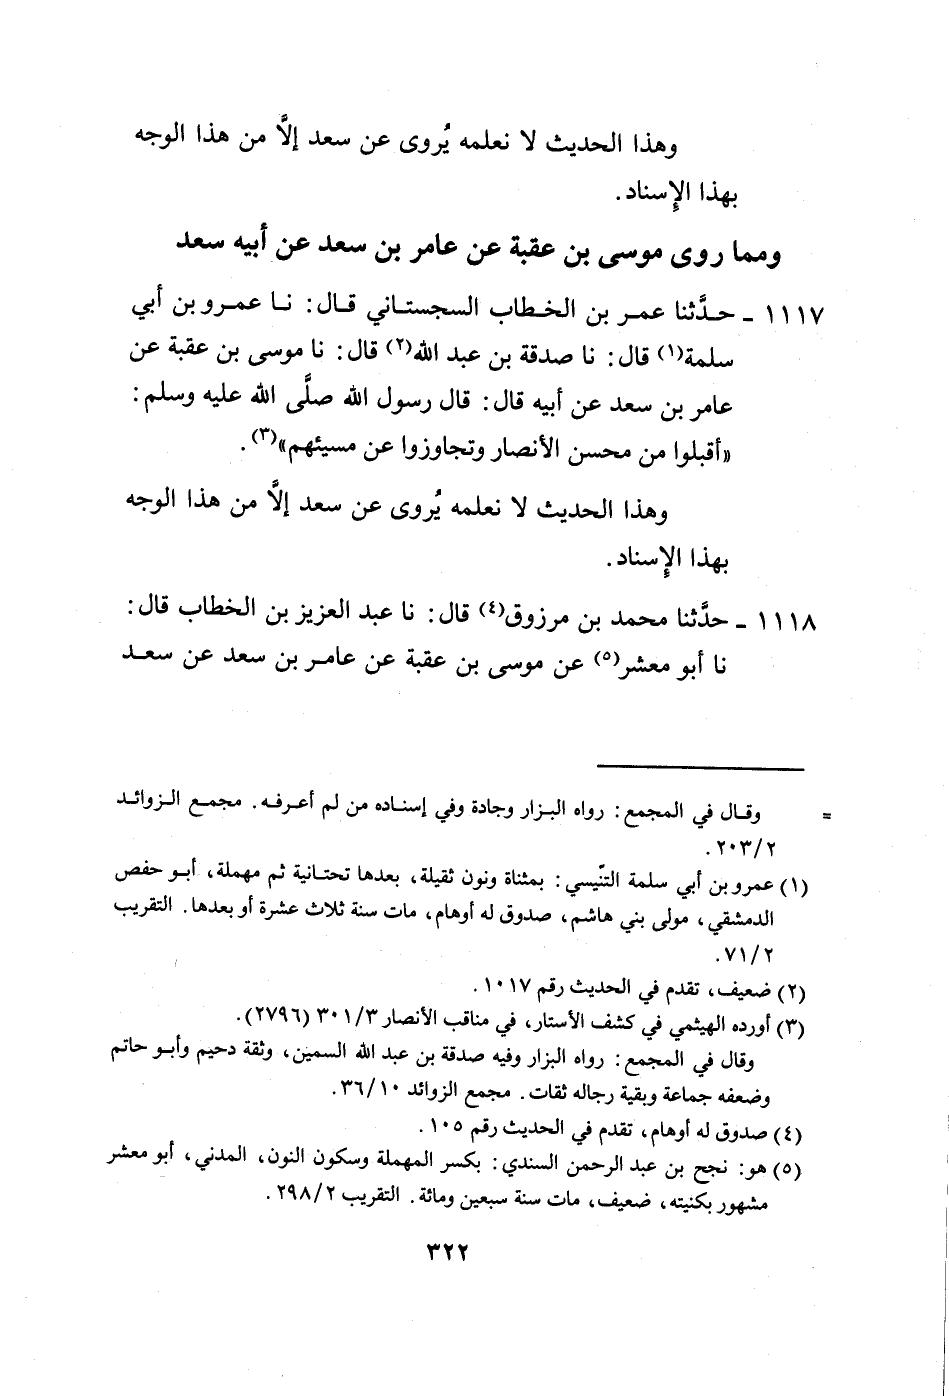 وهذا الحديث لا نعلمه يُروى عن سعد إلاَّ من هذا الوجه
بهذا الإِسناد.
ومما روى موسى بن عقبة عن عامر بن سعد عن أبيه سعد
١١١٧ - حدَّثنا عمر بن الخطاب السجستاني قال: نا عمرو بن أبي
سلمة(١) قال: نا صدقة بن عبد الله(٢) قال: نا موسى بن عقبة عن
عامر بن سعد عن أبيه قال: قال رسول الله صلَّى الله عليه وسلم:
«أقبلوا من محسن الأنصار وتجاوزوا عن مسيئهم»(٣).
وهذا الحديث لا نعلمه يُروى عن سعد إلاَّ من هذا الوجه
بهذا الإِسناد.
١١١٨ - حدَّثنا محمد بن مرزوق(٤) قال: نا عبد العزيز بن الخطاب قال:
نا أبو معشر(٥) عن موسى بن عقبة عن عامر بن سعد عن سعد
= وقال في المجمع: رواه البزار وجادة وفي إسناده من لم أعرفه. مجمع الزوائد
٢٠٣/٢.
(١) عمرو بن أبي سلمة التنّيسي: بمثناة ونون ثقيلة، بعدها تحتانية ثم مهملة، أبو حفص
الدمشقي، مولى بني هاشم، صدوق له أوهام، مات سنة ثلاث عشرة أو بعدها. التقريب
٧١/٢.
(٢) ضعيف، تقدم في الحديث رقم ١٠١٧.
(٣) أورده الهيثمي في كشف الأستار، في مناقب الأنصار ٣٠١/٣ (٢٧٩٦).
وقال في المجمع: رواه البزار وفيه صدقة بن عبد الله السمين، وثقة دحيم وأبو حاتم
وضعفه جماعة وبقية رجاله ثقات. مجمع الزوائد ٣٦/١٠.
(٤) صدوق له أوهام، تقدم في الحديث رقم ١٠٥.
(٥) هو: نجح بن عبد الرحمن السندي: بكسر المهملة وسكون النون، المدني، أبو معشر
مشهور بكنيته، ضعيف، مات سنة سبعين ومائة. التقريب ٢٩٨/٢.
٣٢٢